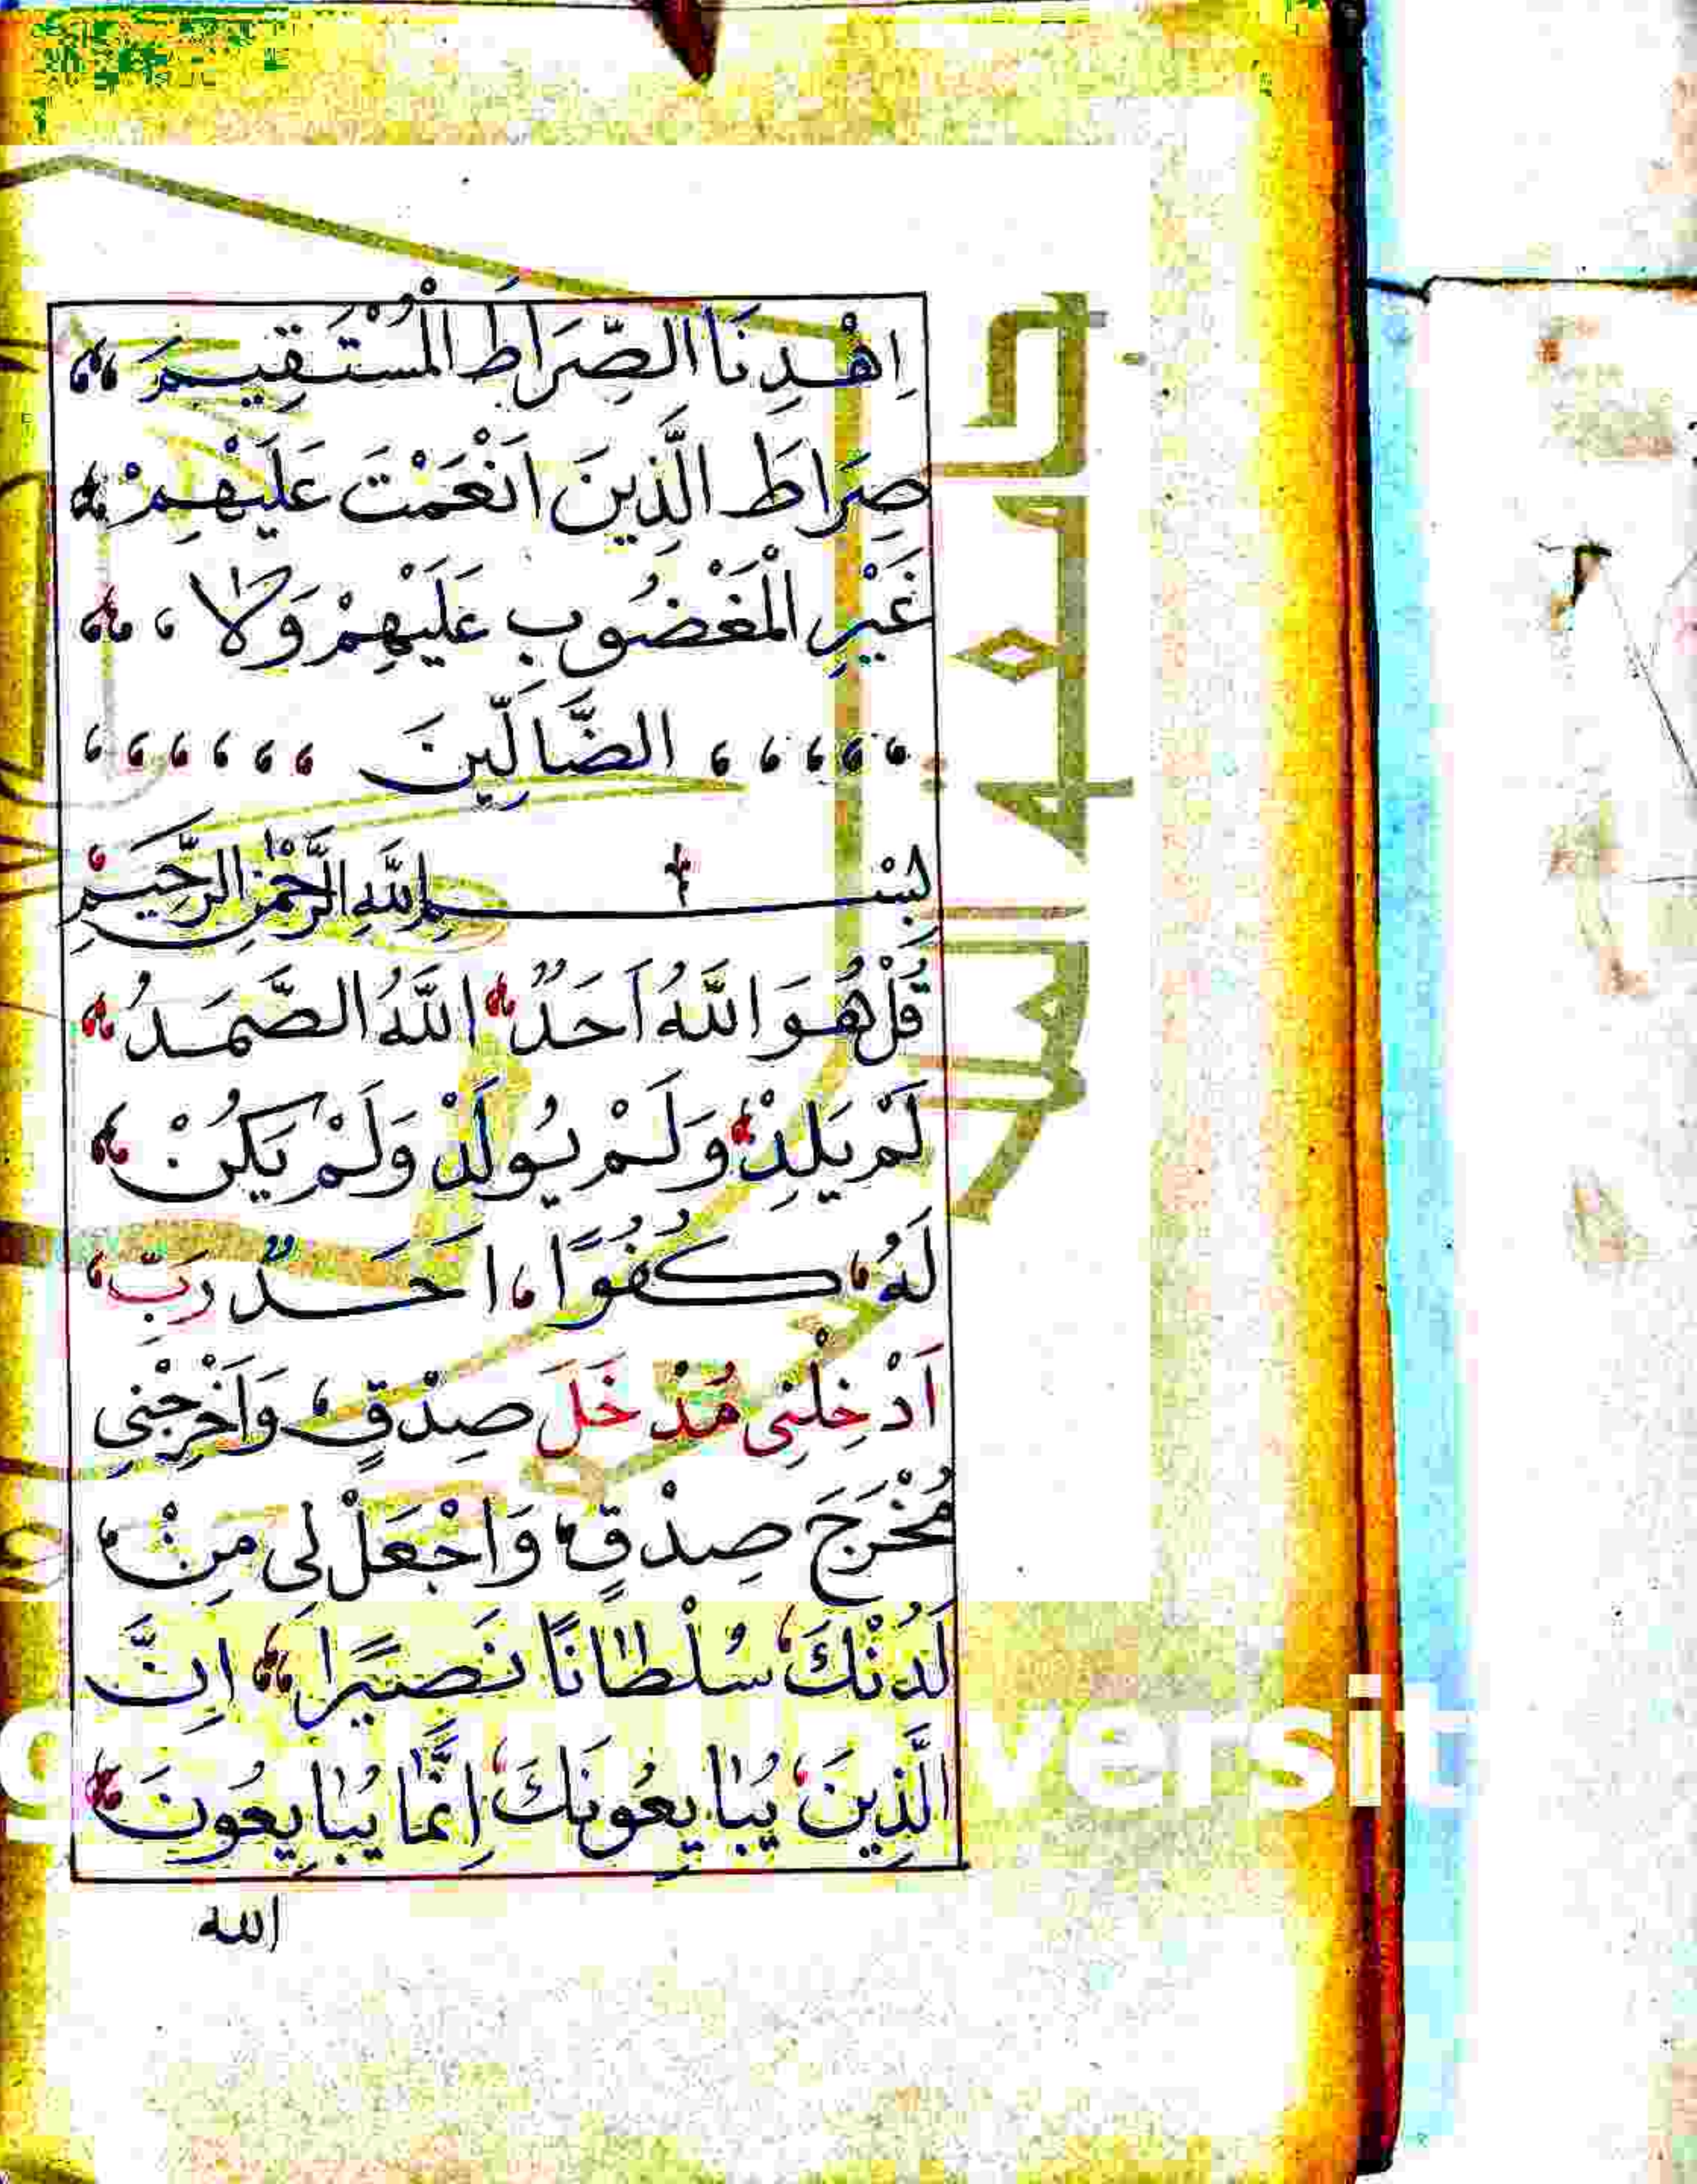 اِهْدِنَا الصِّرَاطَ الْمُسْتَقِيمَ
صِرَاطَ الَّذِينَ اَنْعَمْتَ عَلَيْهِمْ
غَيْرِ الْمَغْضُوبِ عَلَيْهِمْ وَلَا
الضَّالِّينَ
بِسْمِ اللَّهِ الرَّحْمٰنِ الرَّحِيمِ
قُلْ هُوَ اللَّهُ اَحَدٌ اللَّهُ الصَّمَدُ
لَمْ يَلِدْ وَلَمْ يُولَدْ وَلَمْ يَكُنْ
لَهُ كُفُوًا اَحَدٌ رَبِّ
اَدْخِلْنِى مُدْخَلَ صِدْقٍ وَاَخْرِجْنِى
مُخْرَجَ صِدْقٍ وَاجْعَلْ لِى مِنْ
لَدُنْكَ سُلْطَانًا نَصِيرًا اِنَّ
الَّذِينَ يُبَايِعُونَكَ اِنَّمَا يُبَايِعُونَ
الله
versit